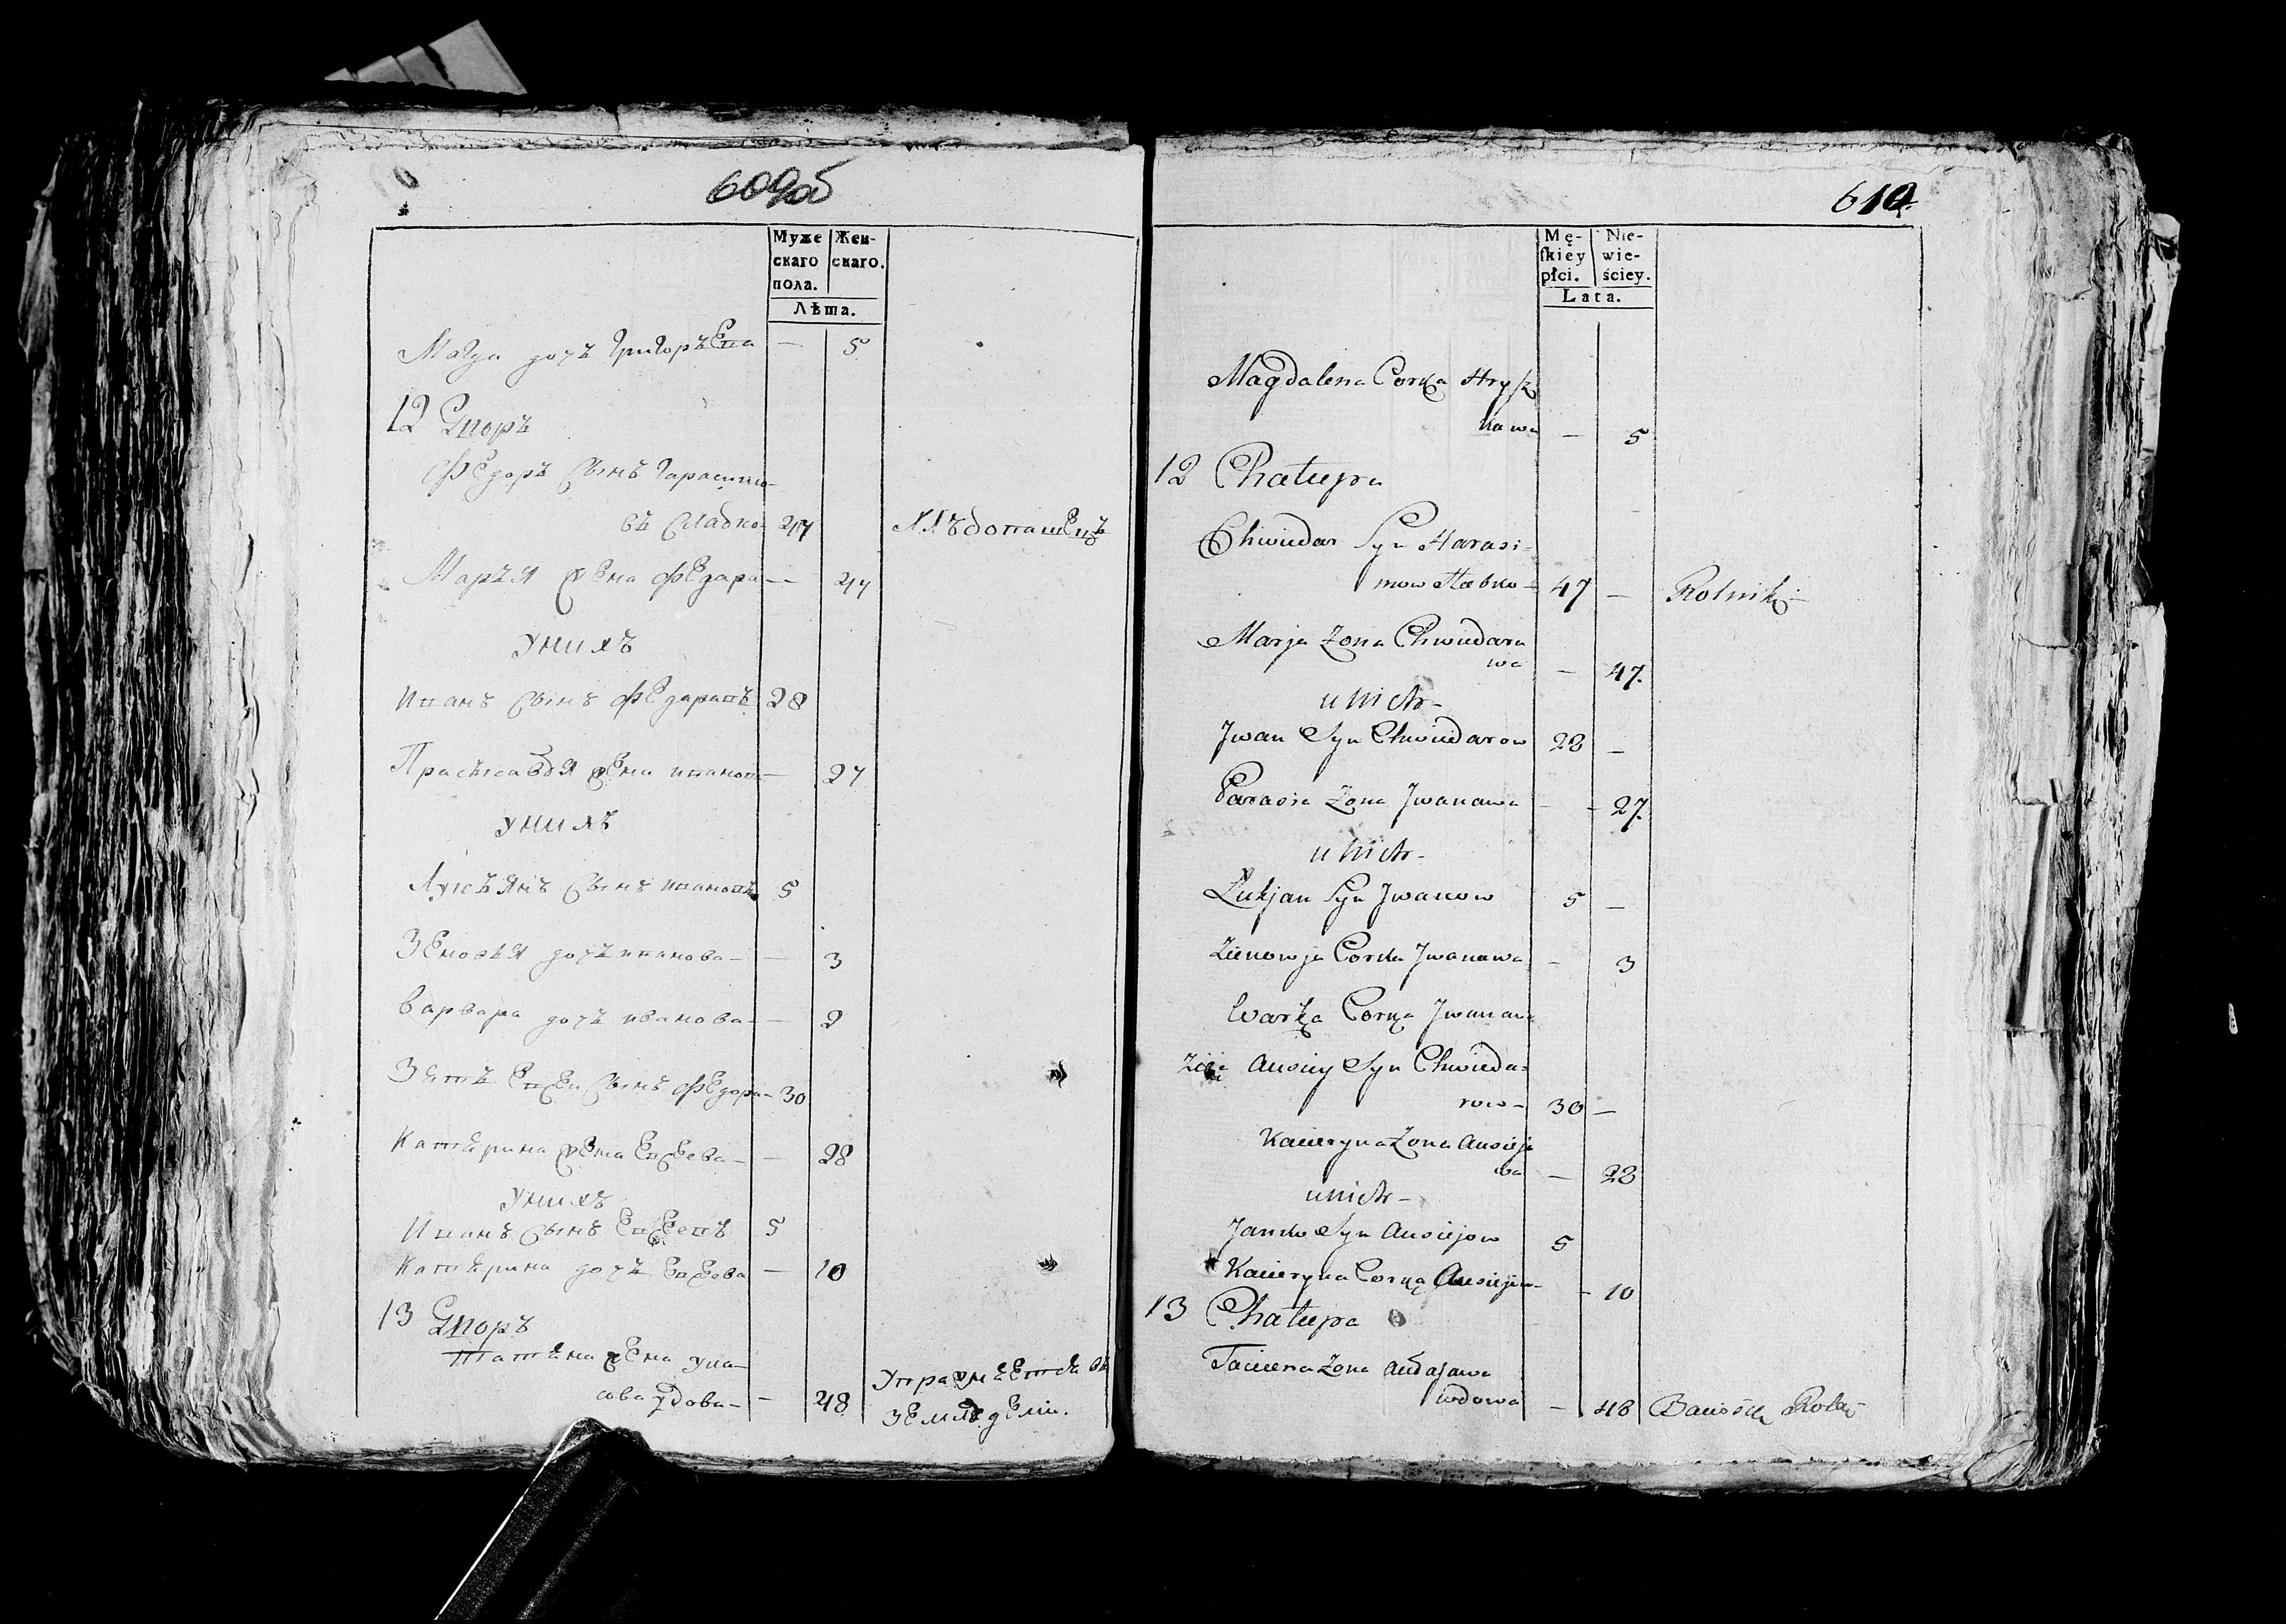 609об
Муже
скаго
пола.
Жен-
скаго.
Лѣта.
Магда дочъ Григорѣва — 5
12 Дворъ
Федоръ Сынъ Гарасимо-
въ Слабко- 47 Хлѣбопашецъ
Марья жена Федара — 47
У них
Иванъ Сынъ Федаравъ 28
жена Иванов — 27
У них
Лукъянъ Сынъ Ивановъ 5
Зеновья дочъ Иванова — 3
Варвара дочъ Иванова — 2
Зять Евсеи Сынъ Федора — 30
Катѣрина жена Евсеева — 28
У них
Иванъ Сынъ Евсеевъ 5
Катѣрина дочъ Евсеева — 10
13 Дворъ
Татяна жена
удова — 48
610
Mę-
ſkiey
płci.
Nie-
wie-
ściey.
Lata.
Magdalena Corka Hrysz
kawa — 5
12 Chałupa
Chwiedar Syn Harasi-
mow Słabko - 47 — Rolnik
Marja Zona Chwiedara
wa — 47.
u nich -
Jwan Syn Chwiedarow 28 —
Parasia Zona Jwanawa — 27.
u nich -
Łukjan Syn Jwanow 5 —
Zienowja Corka Jwanawa — 3
Warka Corka Jwanawa
Zięć Ausiey Syn Chwieda-
row - 30 —
Kacieryna Zona Ausieja
wa — 28
u nich -
Janko Syn Ausiejow 5
Kacieryna Corka Ausiejow - 10
13 Chałupa
Taciena Zona
wdowa — 48